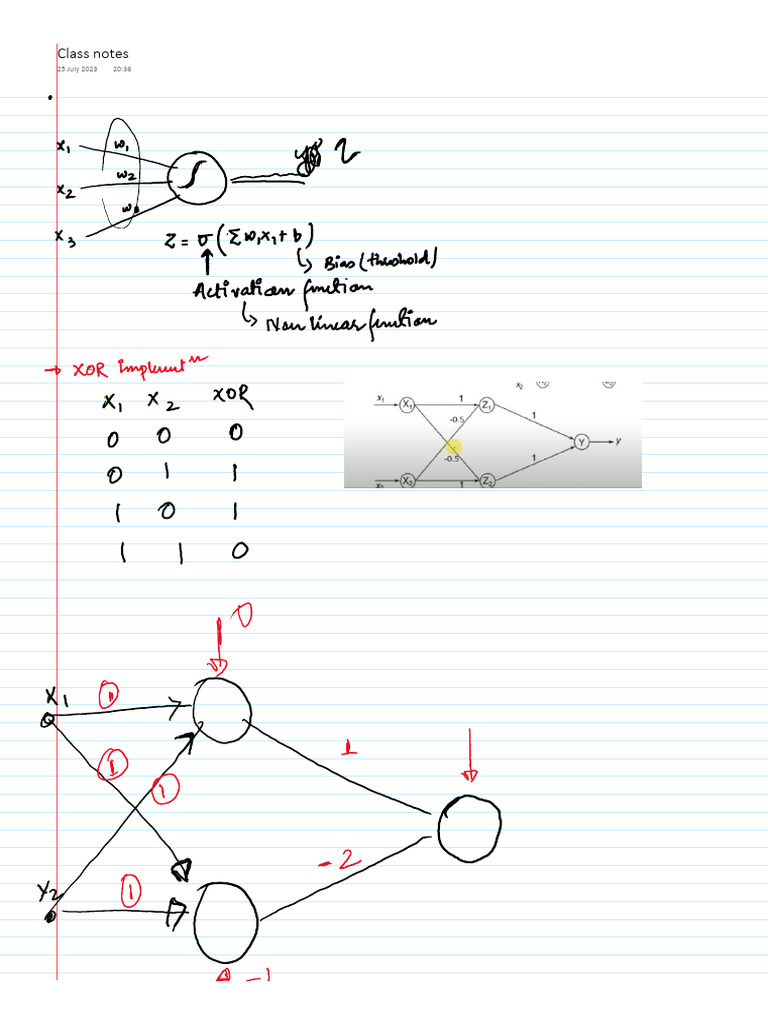 Class notes
25 July 2023 20:36
x1 w1
x2 w2
x3 w
Z
Z = σ (Σ w1x1 + b)
↳ Bias (threshold)
Activation function
↳ Non linear function
→ XOR implementn
X1 X2 XOR
0 0 0
0 1 1
1 0 1
1 1 0
x2
x1 X1 1 Z1
-0.5 1
Y y
-0.5 1
X2 1 Z2
0
X1
1
1
1
-2
X2 1
-1